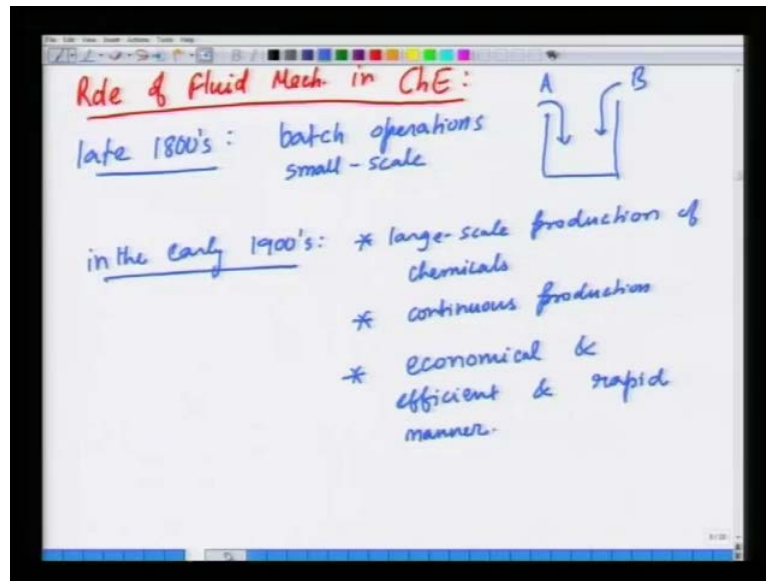 Role of Fluid Mech. in ChE:
A B
late 1800's: batch operations
small-scale
in the early 1900's: * large-scale production of
chemicals
* continuous production
* economical &
efficient & rapid
manner.